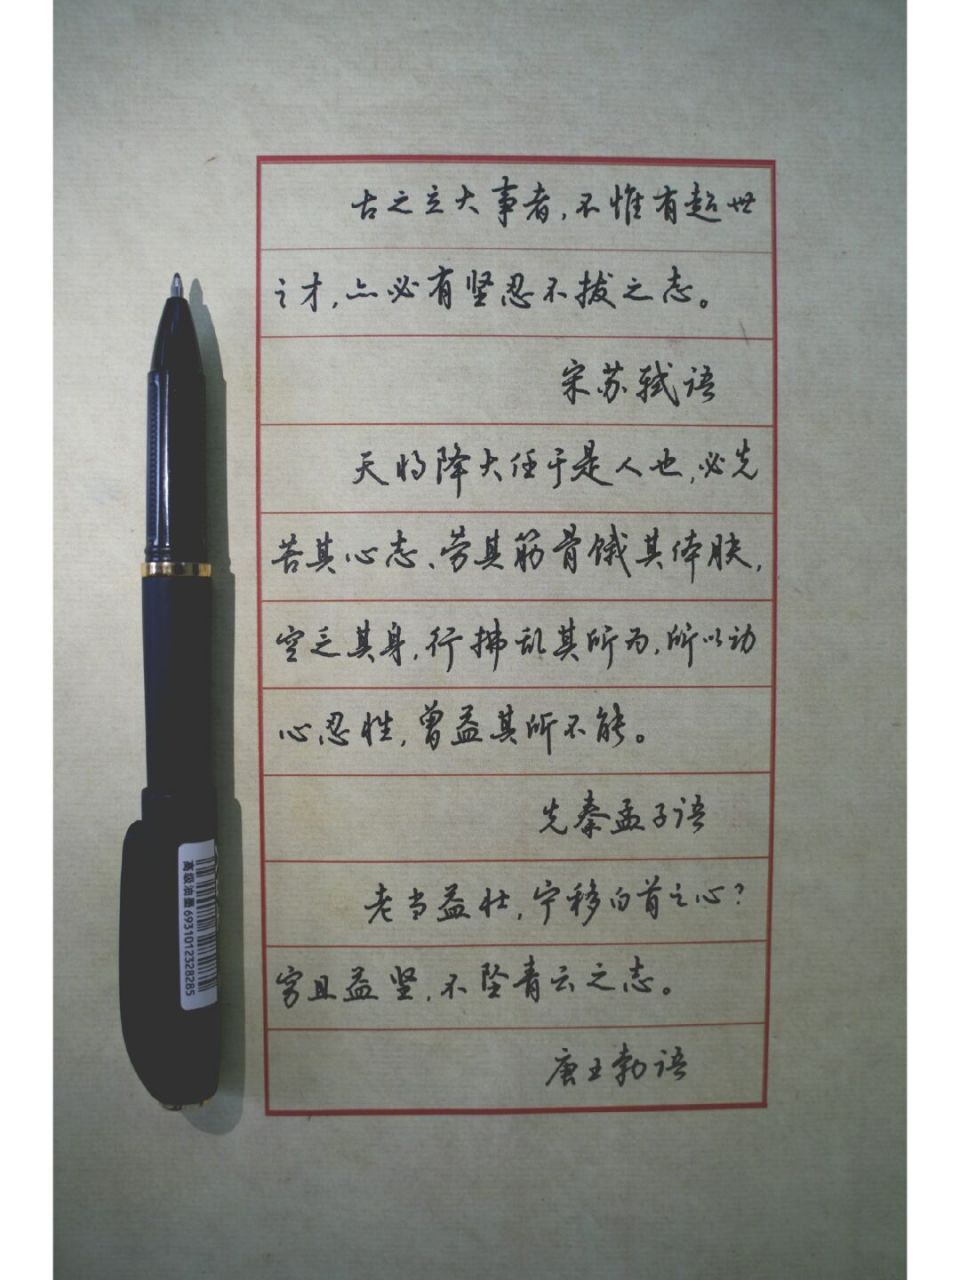 古之立大事者，不惟有超世
之才，亦必有坚忍不拔之志。
宋苏轼语
天将降大任于是人也，必先
苦其心志、劳其筋骨饿其体肤，
空乏其身，行拂乱其所为，所以动
心忍性，曾益其所不能。
先秦孟子语
老当益壮，宁移白首之心？
穷且益坚，不坠青云之志。
唐王勃语
高级油墨6931012328285